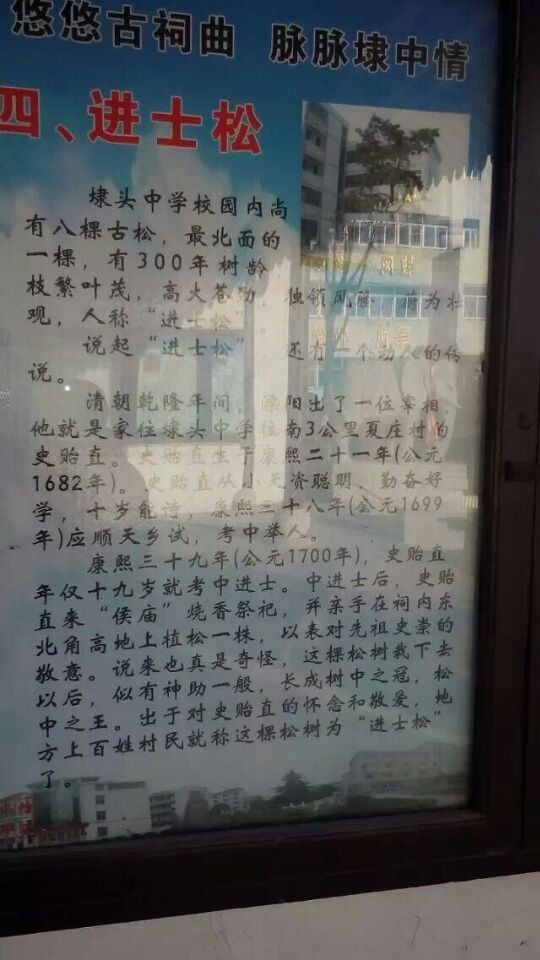 悠悠古祠曲 脉脉埭中情
四、进士松
埭头中学校园内尚
有八棵古松，最北面的
一棵，有300年树龄
枝繁叶茂，高大苍劲，独领风骚，蔚为壮
观，人称“进士松”。
说起“进士松”，还有一个动人的传
说。
清朝乾隆年间，溧阳出了一位宰相，
他就是家住埭头中学往南3公里夏庄村的
史贻直。史贻直生于康熙二十一年(公元
1682年)。史贻直从小天资聪明、勤奋好
学，十岁能诗，康熙三十八年(公元1699
年)应顺天乡试，考中举人。
康熙三十九年(公元1700年)，史贻直
年仅十九岁就考中进士。中进士后，史贻
直来“侯庙”烧香祭祀，并亲手在祠内东
北角高地上植松一株，以表对先祖史崇的
敬意。说来也真是奇怪，这棵松树栽下去
以后，似有神助一般，长成树中之冠，松
中之王。出于对史贻直的怀念和敬爱，地
方上百姓村民就称这棵松树为“进士松”
了。